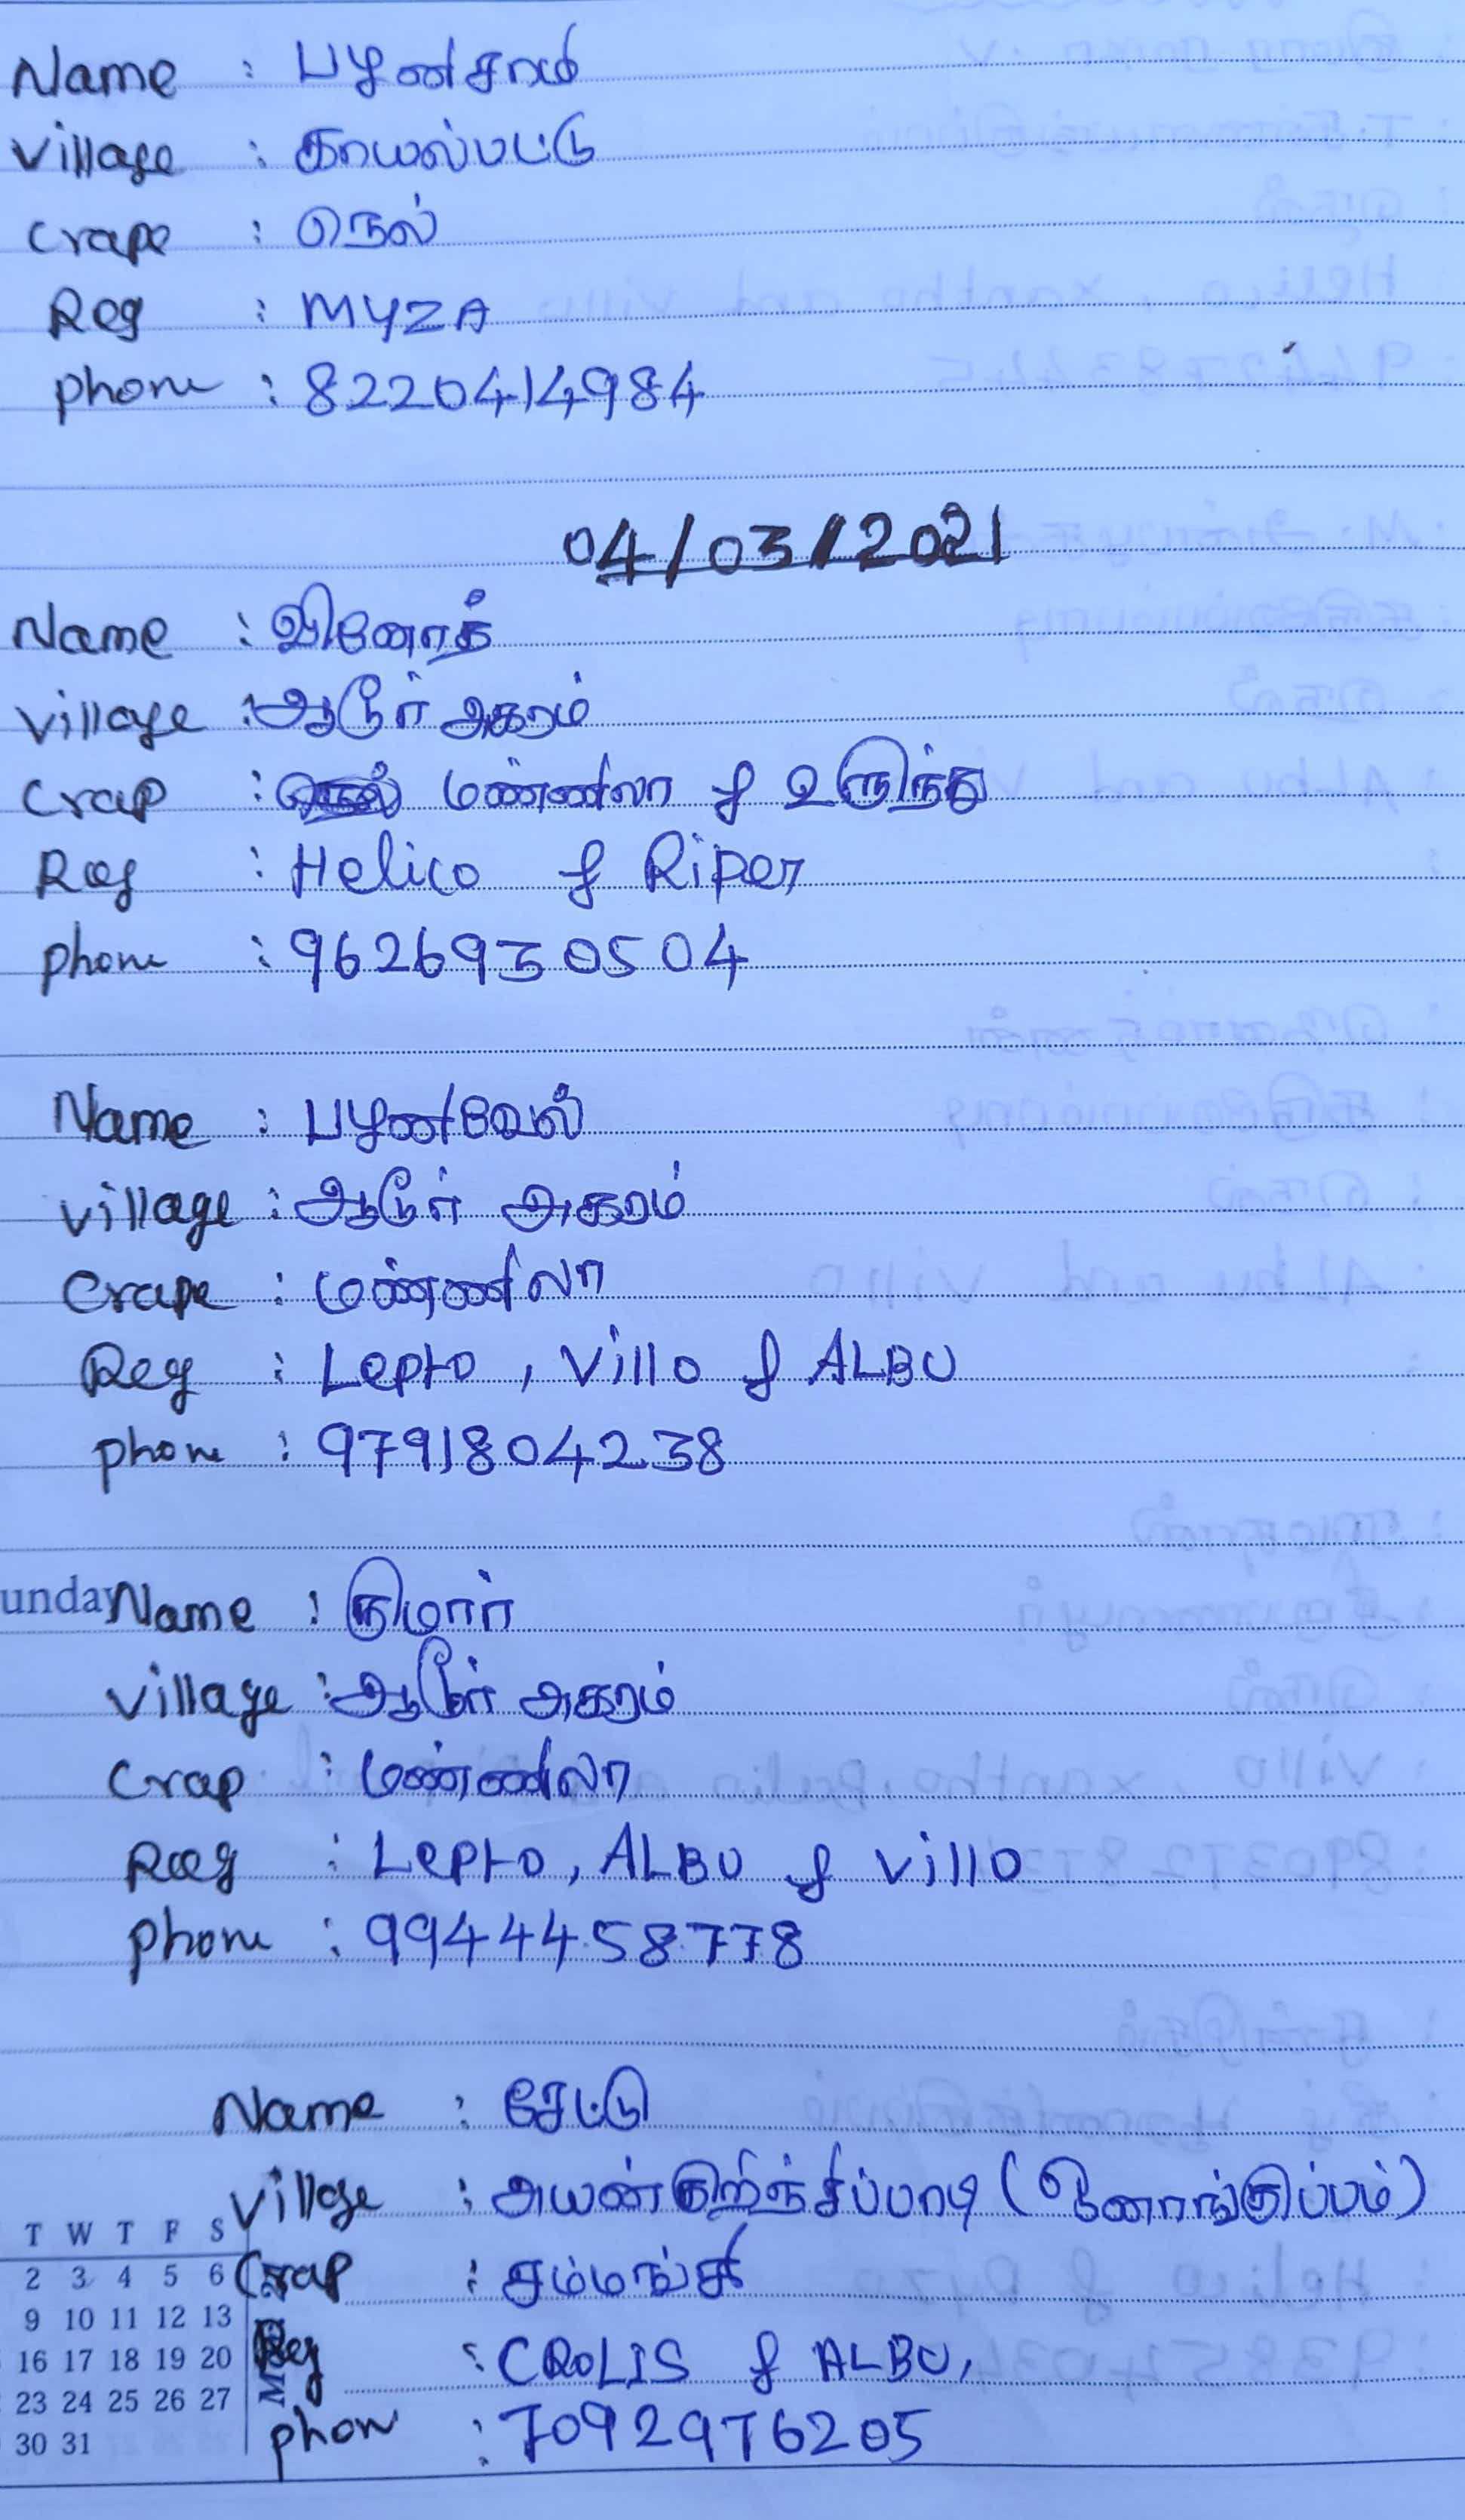 Name : பழனிசாமி
Village : காயல்பட்டு
Crape : நெல்
Reg : MYZA
phone : 8220414984
04/03/2021
Name : வினோத்
Village : ஆடூர் அகரம்
Crap : மணிலா & உளுந்து
Reg : Helico & Riper
phone : 9626930504
Name : பழனிவேல்
Village : ஆடூர் அகரம்
Crape : மணிலா
Reg : Lepto, Villo & ALBU
phone : 9791804238
unday Name : குமார்
Village : ஆடூர் அகரம்
Crap : மணிலா
Reg : Lepto, ALBU & Villo
phone : 9944458778
Name : சேட்டு
Village : அயன்குறிஞ்சிப்பாடி
T W T F S
Crap : சம்மங்கி
2 3 4 5 6
9 10 11 12 13
Reg : CROLIS & ALBU,
16 17 18 19 20
23 24 25 26 27
phon : 7092976205
30 31